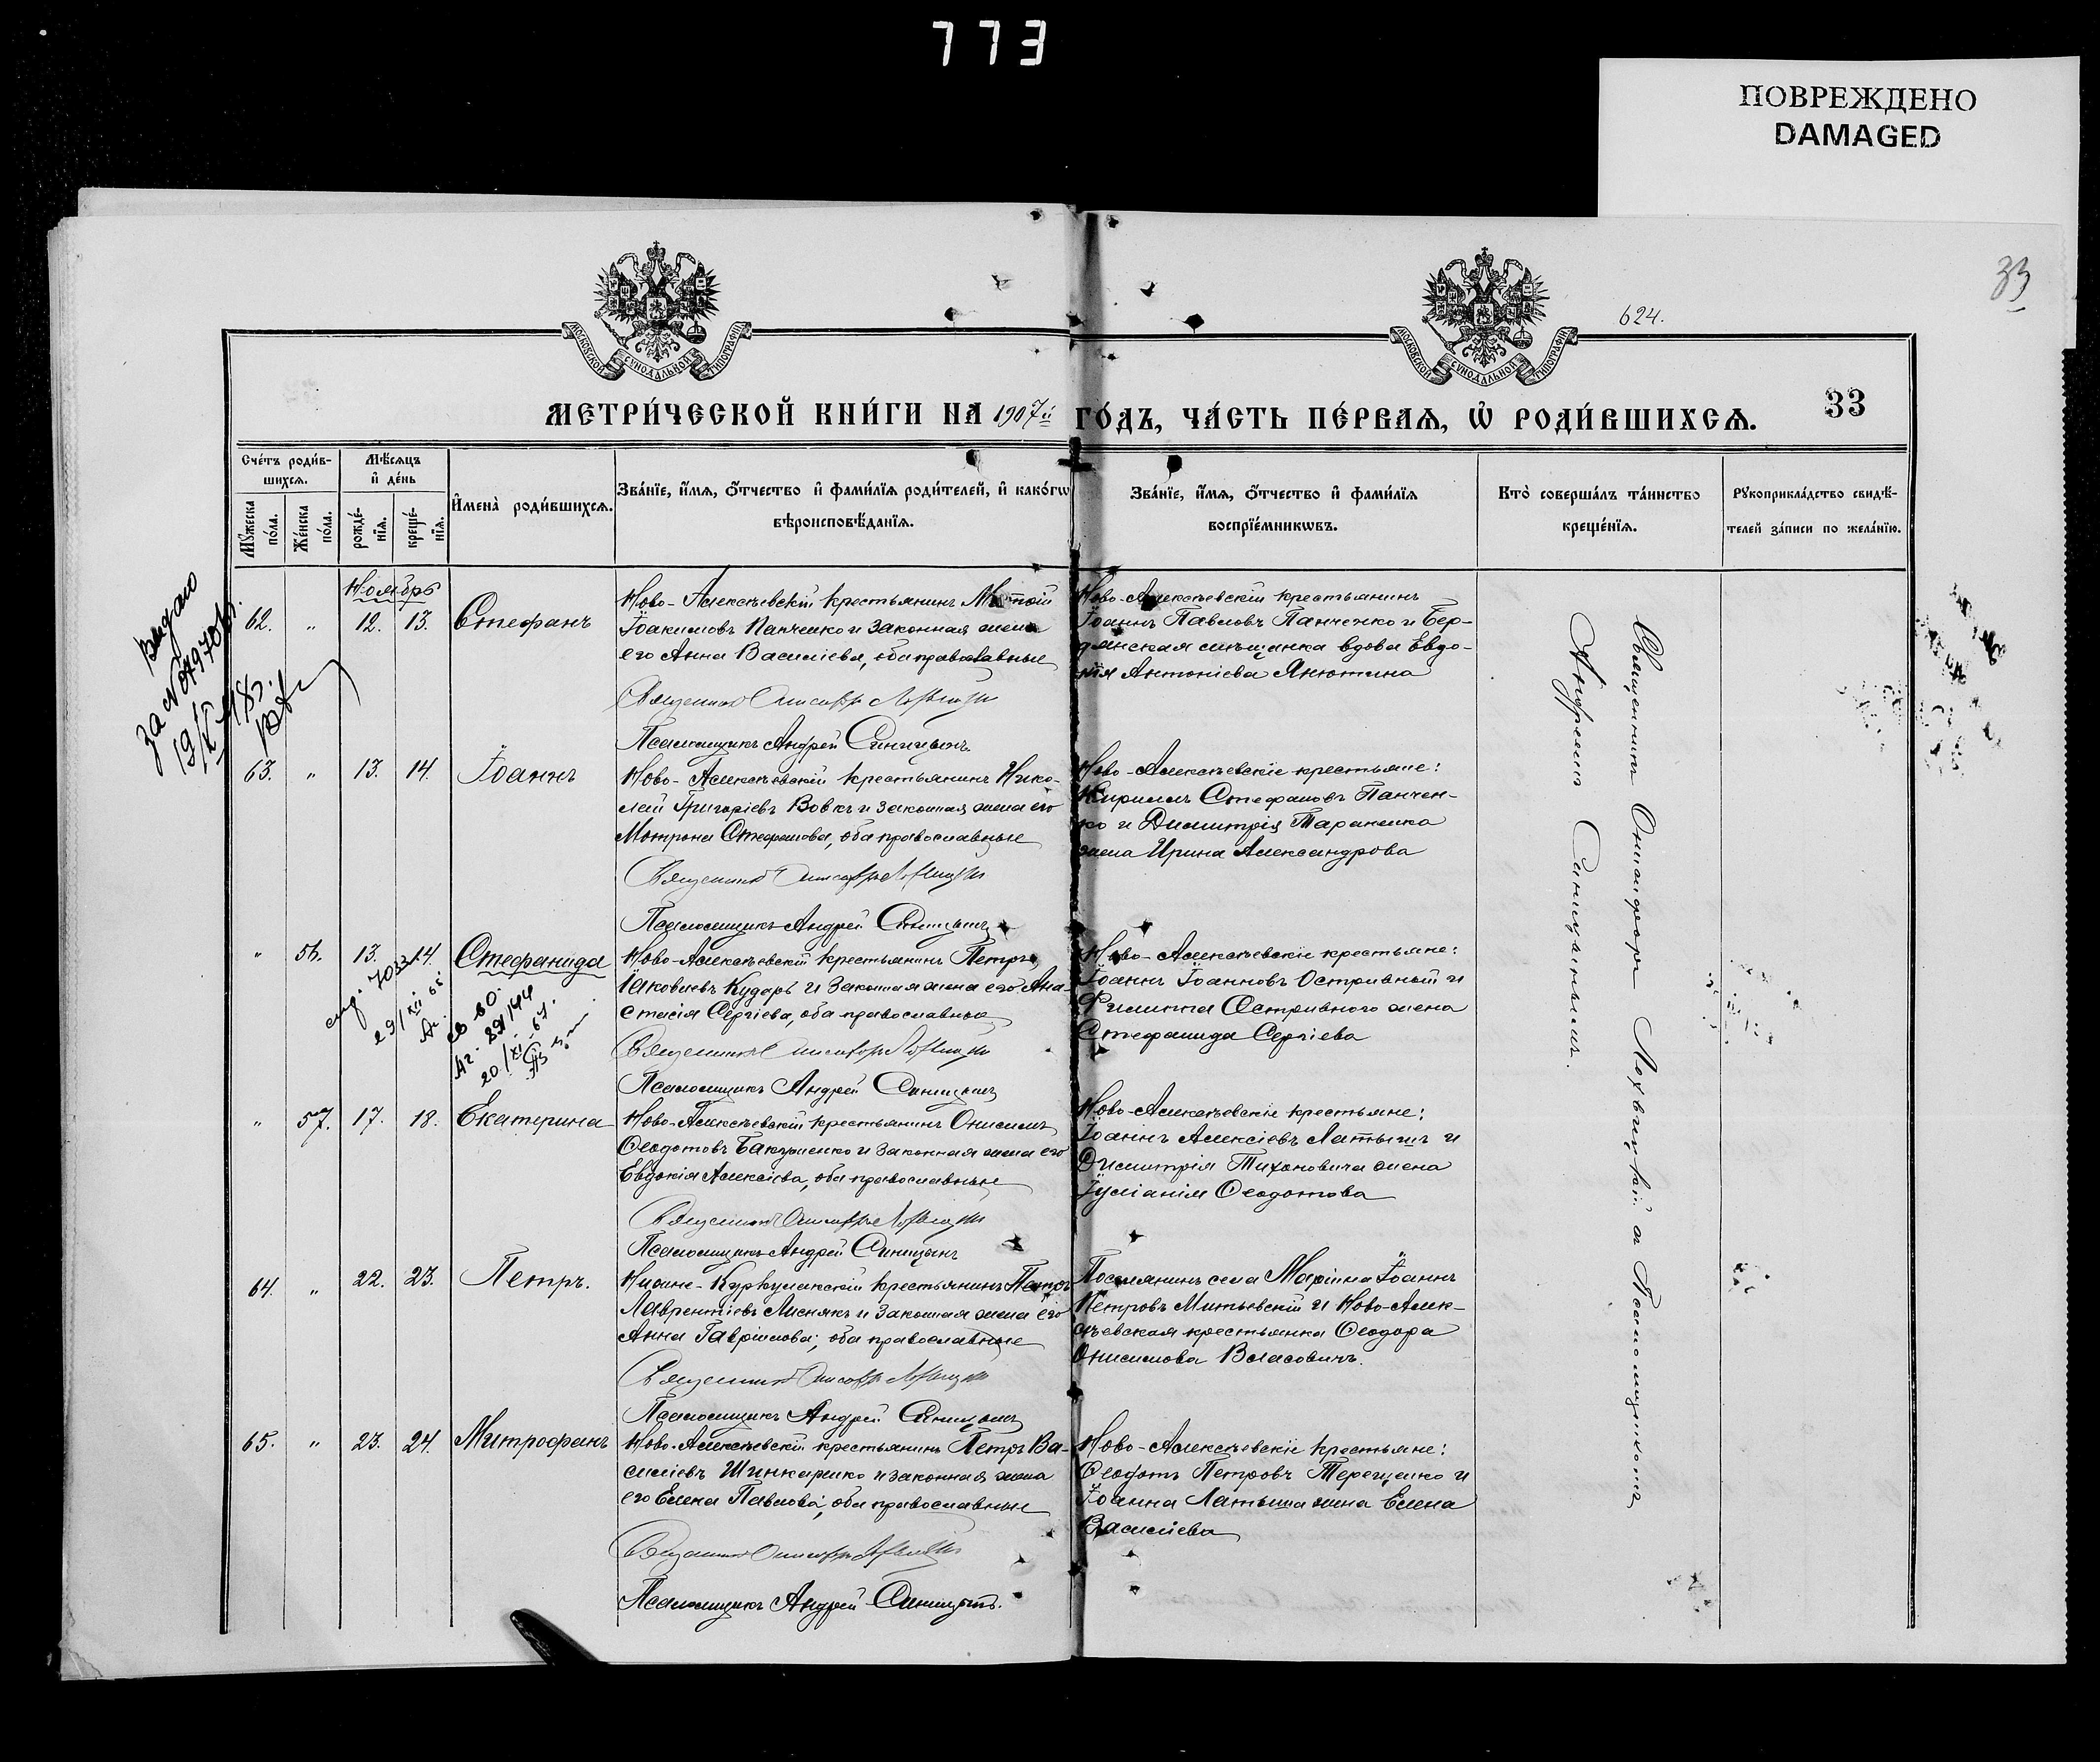 773
ПОВРЕЖДЕНО
DAMAGED
33
624.
МОСКОВСКОЙ СѴНОДАЛЬНОЙ ТИПОГРАФІИ
МОСКОВСКОЙ СѴНОДАЛЬНОЙ ТИПОГРАФІИ
МЕТРИ́ЧЕСКОЙ КНИ́ГИ НА 1907й ГО́ДЪ, ЧА́СТЬ ПЕ́РВАѦ, Ѽ РОДИ́ВШИХСѦ. 33
Сче́тъ роди́в-
шихсѧ.
Мꙋ́жеска
по́ла.
Же́нска
по́ла.
Мѣ́сѧцъ
и҆ де́нь
рожде́-
нїѧ.
креще́-
нїѧ.
И҆мена̀ роди́вшихсѧ.
Зва́нїе, и҆́мѧ, ѻ҆́тчество и҆ фами́лїѧ роди́телей, и҆ како́гѡ
вѣроисповѣ́данїѧ.
Зва́нїе, и҆́мѧ, ѻ҆́тчество и҆ фами́лїѧ
воспрїе́мникѡвъ.
Кто̀ соверша́лъ та́инство
креще́нїѧ.
Рꙋкоприкла́дство свидѣ́-
телей за́писи по жела́нїю.
Ноябрь
62. " 12. 13. Стефанъ
Ново-Алексѣевскій крестьянинъ
Іоакимовъ Панченко и законная жена
его Анна Василіева, оба православные
Священникъ Онисифоръ Лохвицкій
Псаломщикъ Андрей Синицынъ.
Ново-Алексѣевскій крестьянинъ
Іоаннъ Павловъ Панченко и Бер-
дянская мѣщанка вдова Евдо-
кія Антоніева Янютина
Выдано
за №
63. " 13. 14. Іоаннъ
Ново-Алексѣевскій крестьянинъ Нико-
лай Григоріевъ Вовкъ и законная жена его
Мотрона Стефанова, оба православные
Священникъ Онисифоръ Лохвицкій
Псаломщикъ Андрей Синицынъ
Ново-Алексѣевскіе крестьяне:
Кириллъ Стефановъ Панчен-
ко и Димитрія Тараненка
жена Ирина Александрова
" 56. 13. 14. Стефанида
Ново-Алексѣевскій крестьянинъ Петръ
Іаковлевъ Кударь и законная жена его Ана-
стасія Сергіева, оба православные
Священникъ Онисифоръ Лохвицкій
Псаломщикъ Андрей Синицынъ
Ново-Алексѣевскіе крестьяне:
Іоаннъ Іоанновъ Остривный и
Филиппа Остривного жена
Стефанида Сергіева
" 57. 17. 18. Екатерина
Ново-Алексѣевскій крестьянинъ Онисимъ
Ѳеодотовъ Бакуменко и законная жена его
Евдокія Алексіева, оба православные
Священникъ Онисифоръ Лохвицкій
Псаломщикъ Андрей Синицынъ
Ново-Алексѣевскіе крестьяне:
Іоаннъ Алексіевъ Латышъ и
Димитрія Тихоновича жена
Іуліанія Ѳеодотова
64. " 22. 23. Петръ.
Нижне-Куркулакскій крестьянинъ Петръ
Лаврентіевъ Лиснякъ и законная жена его
Анна Гавріилова, оба православные
Священникъ Онисифоръ Лохвицкій
Псаломщикъ Андрей Синицынъ
Поселянинъ села Маріина Іоаннъ
Петровъ Митьевскій и Ново-Алек-
сѣевская крестьянка Ѳеодора
Онисимова Власовичъ.
65. " 23. 24. Митрофанъ
Ново-Алексѣевскій крестьянинъ Петръ Ва-
силіевъ Шинкаренко и законная жена
его Елена Павлова, оба православные
Священникъ Онисифоръ Лохвицкій
Псаломщикъ Андрей Синицынъ.
Ново-Алексѣевскіе крестьяне:
Ѳеодотъ Петровъ Терещенко и
Іоанна Латыша жена Елена
Василіева
Священникъ Онисифоръ Лохвицкій съ Псаломщикомъ
Андреемъ Синицынымъ.